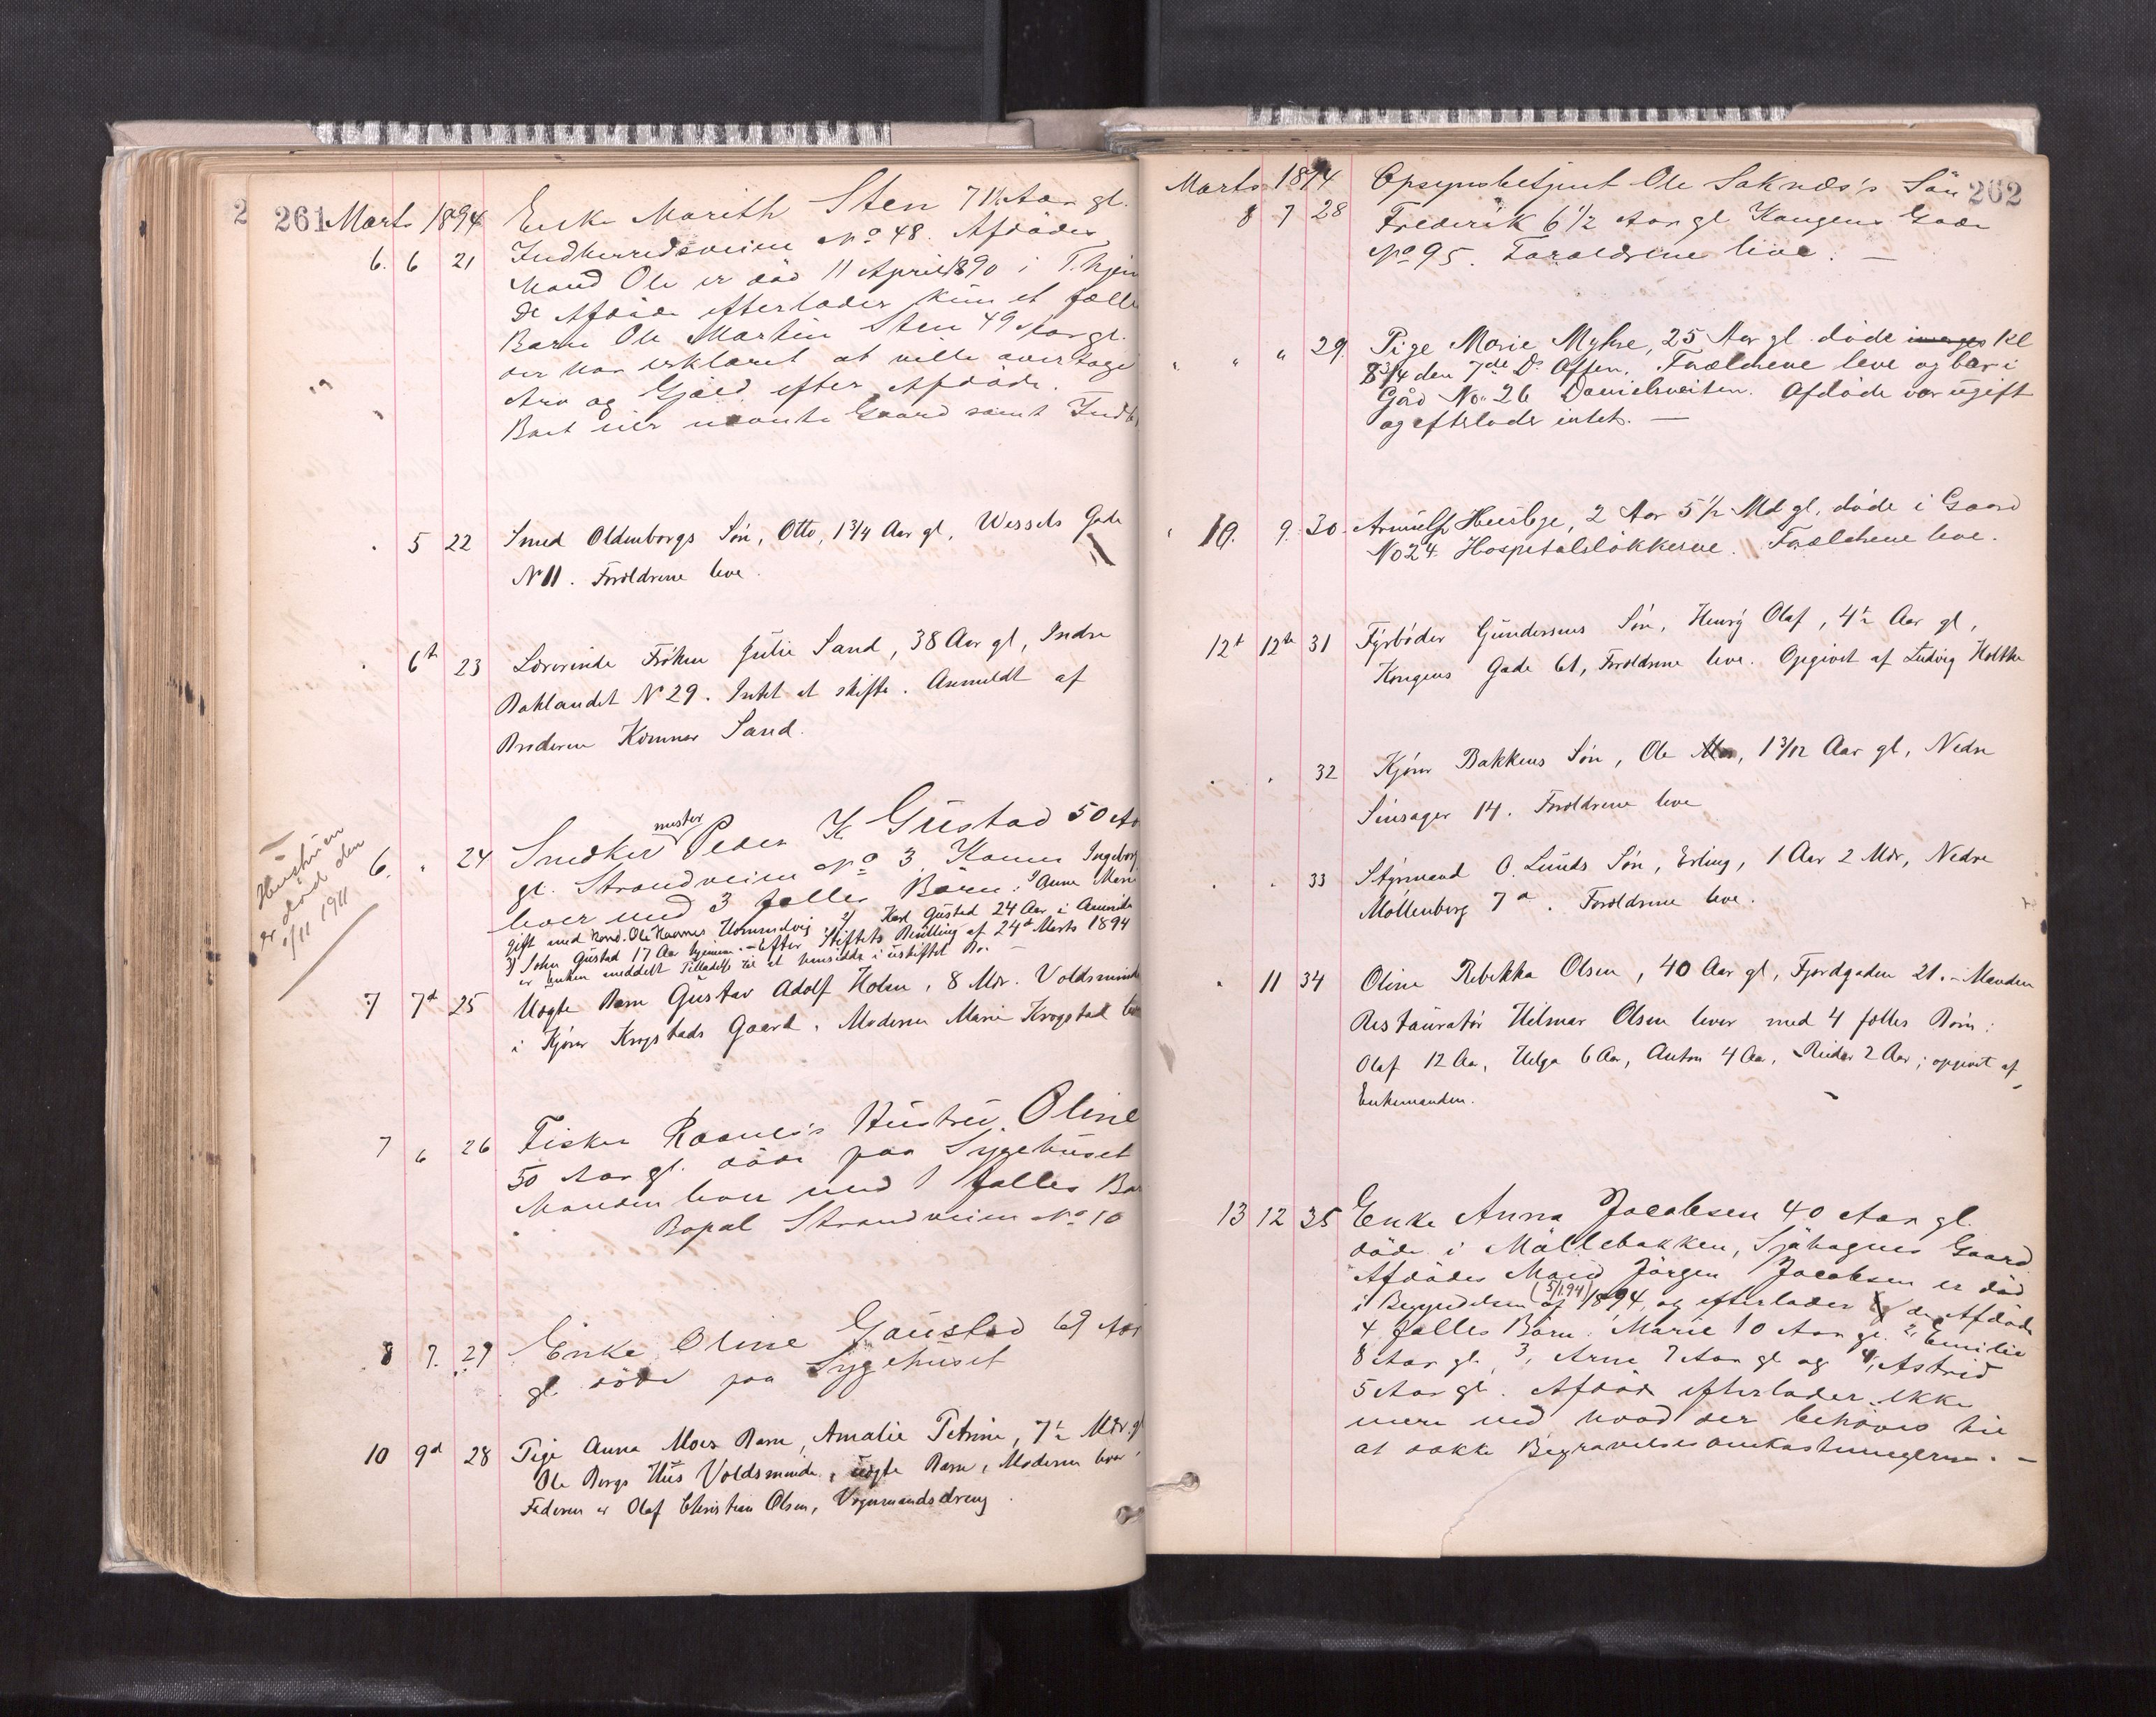 261 Marts 1894 Enke Marith Sten 71½ Aar gl.
6. 6 21 Indherredsveien No 48. Afdødes
Mand Ole er død 11 April 1890 i T.hjem
De Afdøde efterlader kun et fælles
Barn Ole Martin Sten 49 Aar gl.
der har erklæret at ville overtage
Arv og Gjæld efter Afdøde.
Boet eier nævnte Gaard samt Indb
5 22 Smed Oldenborgs Søn, Otto, 1 3/4 Aar gl, Wessels Gade
N 11. Forældrene leve.
6te 23 Lærerinde Frøken Julie Sand, 38 Aar gl, Indre
Baklandet N 29. Intet at skifte. Anmeldt af
Broderen Kæmner Sand.
Hustruen
er død den
/11 1911
6. 24 Snedkermester Peder K Gustad 50 Aar
gl. Strandveien No 3. Konen Ingeborg
lever med 3 fælles Børn: 1) Anne Marie
gift med Kond. Ole Hannes Hommelvig 2) Karl Gustad 24 Aar i Amerika
3) John Gustad 17 Aar hjemme. - Efter Stiftets Bevilling af 24de Marts 1894
er Enken meddelt Tilladelse til at hensidde i uskiftet Bo. -
7 7de 25 Uægte Barn Gustav Adolf Holm, 8 Mdr. Voldsminde
i Kjører Krogstads Gaard. Moderen Marie Krogstad lever
7 6 26 Fisker Raanes's Hustru Oline
50 Aar gl. døde paa Sygehuset
Manden lever med 1 fælles Barn
Bopæl Strandveien No 10
8 7. 27 Enke Oline Gaustad 69 Aar
gl. døde paa Sygehuset
10 9de 28 Pige Anna Moes Barn, Amalie Petrine, 7½ Mdr. gl
Ole Bergs Hus Voldsminde, uægte Barn, Moderen lever
Faderen er Olaf Christian Olsen, Vognmandsdreng.
Marts 1894 Opsynsbetjent Ole Saknes's Søn 262
8 7 28 Frederik 6 1/2 Aar gl Kongens Gade
No 95. Forældrene leve. -
" " " 29. Pige Marie Myhre, 25 Aar gl. døde imorges Kl
8 3/4 den 7de Ds Aften. Forældrene leve og bor i
Gård No 26 Danielsveiten. Afdøde var ugift
og efterlader intet. -
10. 9. 30. Arnulf Husbye, 2 Aar 5 1/2 Md gl, døde i Gaard
No 24 Hospitalsløkkerne. Forældrene leve.
12te 12te 31 Fyrbøder Gundersens Søn, Henry Olaf, 4½ Aar gl,
Kongens Gade 61, Forældrene leve. Opgivet af Ludvig Holtke
32 Kjører Bakkens Søn, Ole, 1 3/12 Aar gl, Nedre
Sinsager 14. Forældrene leve
33 Styrmand O. Lunds Søn, Erling, 1 Aar 2 Mdr, Nedre
Møllenberg 7a. Forældrene leve.
11 34 Oline Rebekka Olsen, 40 Aar gl, Fjordgaden 21. - Manden
Restauratør Hilmar Olsen lever med 4 fælles Børn:
Olaf 12 Aar, Helga 6 Aar, Anton 4 Aar, Reidar 2 Aar; opgivet af
Enkemanden.
13 12 35 Enke Anna Jacobsen 40 Aar gl.
døde i Møllebakken, Sjåhagnes Gaard
Afdødes Mand Jörgen Jacobsen er død
i Begyndelsen af (5/1 94) 1894, og efterlader de Afdøde
4 fælles Børn: Marie 10 Aar gl. 2, Emilie
8 Aar gl. 3, Arne 7 Aar gl og 4, Astrid
5 Aar gl. Afdøde efterlader ikke
mere end hvad der behøves til
at dække Begravelsesomkostningerne. -